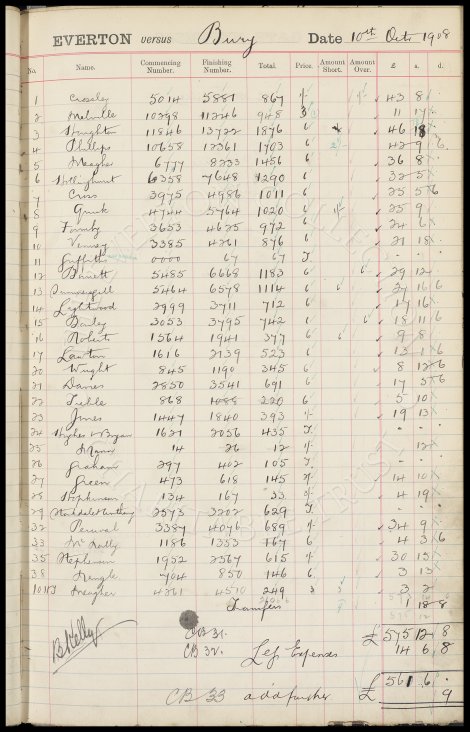 EVERTON versus Bury Date 10th Oct. 1908
No. Name. Commencing Number. Finishing Number. Total. Price. Amount Short. Amount Over. £ s. d.
1 Crosley 5014 5881 867 1/- 43 8
2 Melville 10298 11246 948 3 11 17
3 Haughton 11846 13722 1876 6 46 18
4 Phillips 10658 12361 1703 6 2/- 42 9 6
5 Meagher 6777 8233 1456 6 36 8
6 Hollinghurst 6358 7648 1290 6 32 5
7 Cross 3975 4986 1011 6 25 5 6
8 4744 5764 1020 6 1/- 25 9
9 Formby 3653 4625 972 6 24 6
10 3385 4261 876 6 21 18
11 Griffith 0000 67 67 T
12 Barrett 5485 6668 1183 6 6 29 12
13 5464 6578 1114 6 6 27 16 6
14 Lightwood 2999 3711 712 6 17 16
15 Bailey 3053 3795 742 6 18 11 6
16 Roberts 1564 1941 377 6 6 9 8
17 Lawton 1616 2139 523 6 13 1 6
20 Wright 845 1190 345 6 8 12 6
21 Davies 2850 3541 691 6 17 5 6
22 Treble 868 1088 220 6 5 10
23 Jones 1447 1840 393 1/- 19 13
24 Hughes & Bryan 1621 2056 435 T
25 Mann 14 26 12 1/- 12
26 Graham 297 402 105 T
27 Green 473 618 145 1/- 14 10
28 Stephenson 134 167 33 1/- 4 19
29 2573 3202 629 T
32 Percival 3387 4076 689 1/- 34 9
33 McNally 1186 1353 167 6 4 3 6
35 Stephenson 1952 2567 615 1/- 30 15
38 704 850 146 6 3 13
Meagher 4261 4510 249 3 3 2
Transfers 1 18 8
£ 575 12 8
CB 31.
CB 32. Less Expenses 14 6 8
B Kelly
£ 561 6 .
CB 33 add further £ 9